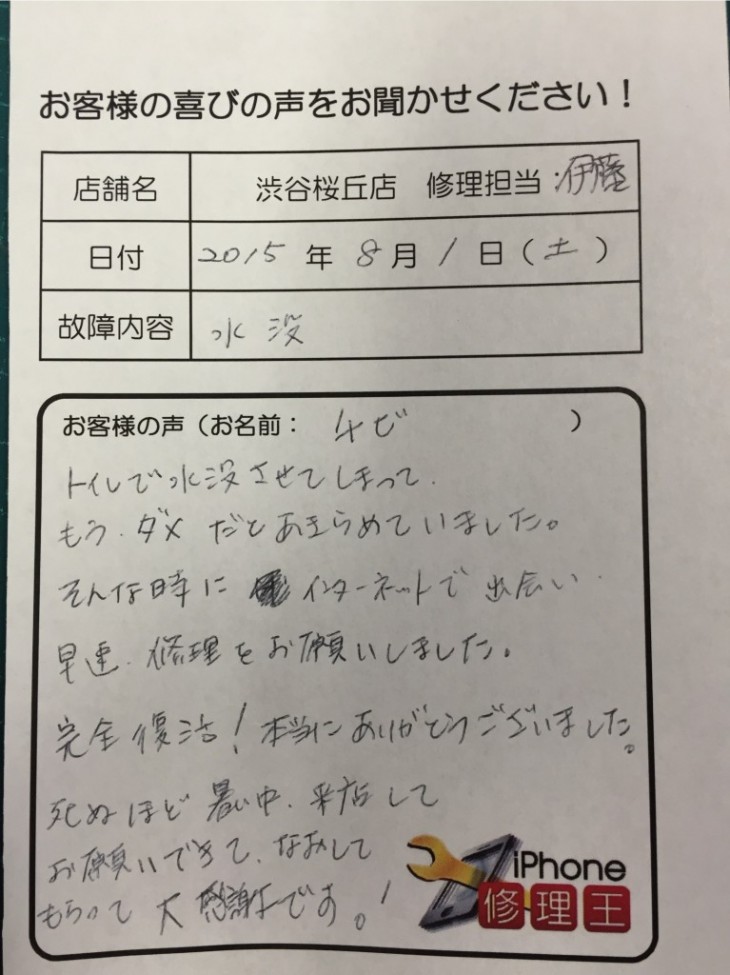 お客様の喜びの声をお聞かせください！
店舗名 渋谷桜丘店 修理担当：伊藤
日付 2015 年 8 月 1 日（土）
故障内容 水没
お客様の声（お名前： ）
トイレで水没させてしまって、
もう、ダメだとあきらめていました。
そんな時に インターネットで出会い、
早速、修理をお願いしました。
完全復活！本当にありがとうございました。
死ぬほど暑い中、来店して
お願いできて、なおして
もらって大感謝です。！
iPhone
修理王